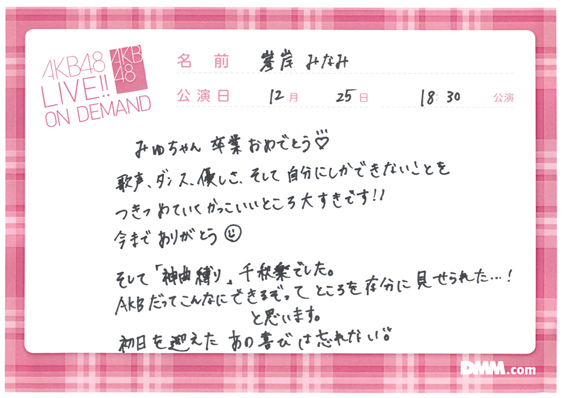 AKB48
LIVE!!
ON DEMAND
AKB
48
名前 峯岸 みなみ
公演日 12月 25日 18:30 公演
みゆちゃん 卒業おめでとう♡
歌声、ダンス、優しさ、そして自分にしかできないことを
つきつめていくかっこいいところ大すきです!!
今まで ありがとう☺
そして「神曲縛り」千秋楽でした。
AKBだってこんなにできるぞってところを存分に見せられた…!
と思います。
初日を迎えた あの喜びは忘れない。
DMM.com